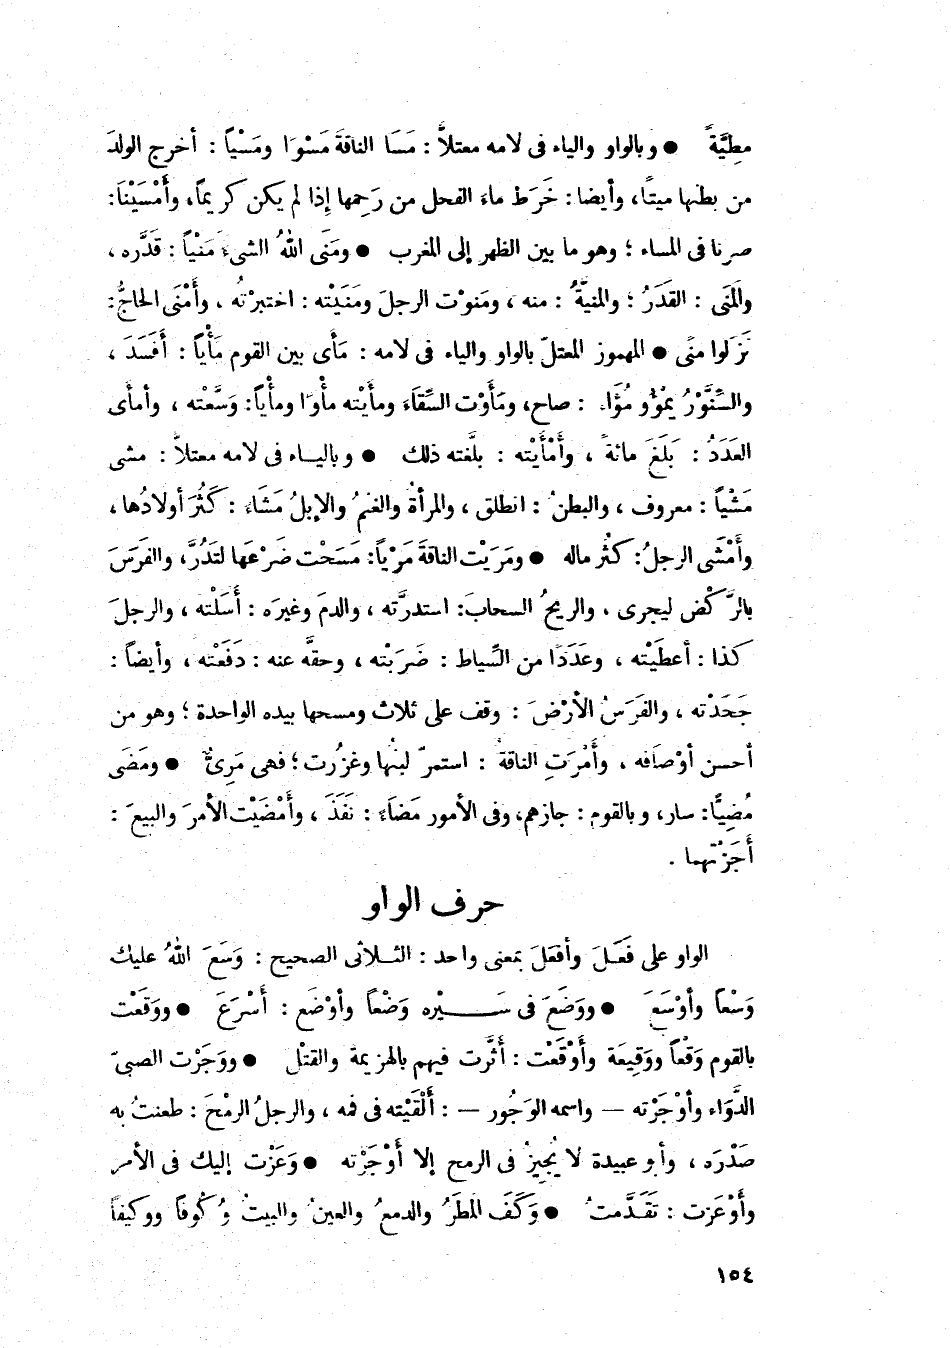 مطِيَّةً ● وبالواو والياء فى لامه معتلاًّ : مَسَا الناقةَ مَسْوًا ومَسْيًا : أخرج الولدَ
من بطنها ميتًا، وأيضا : خَرَط ماءَ الفحل من رَحِمها إذا لم يكن كريمًا، وأَمْسَيْنَا :
صرنا فى المساء ؛ وهو ما بين الظهر إلى المغرب ● ومَنَى اللهُ الشىءَ مَنْيًا : قَدَّره ،
والمَنَى : القَدَرُ ؛ والمنيَّةُ : منه ، ومَنوْت الرجلَ ومَنَيْته : اختبرْتُه ، وأَمْنَى الحاجُّ :
نَزَلوا منًى ● المهموز المعتلّ بالواو والياء فى لامه : مَأَى بين القوم مَأْيًا : أَفسَدَ ،
والسِّنَّوْرُ يمْؤُو مُؤَاء : صاح، ومَأَوْت السِّقَاءَ ومأَيْته مأْوًا ومأْيًا : وَسَّعْته ، وأمأى
العَدَدُ : بَلَغَ مائةً ، وأَمْأَيْته : بلَّغته ذلك ● وبالياء فى لامه معتلاًّ : مشى
مَشْيًا : معروف ، والبطنُ : انطلق ، والمرأةُ والغنمُ والإبلُ مَشَاءً : كَثُرَ أولادُها ،
وأَمْشَى الرجلُ : كثُر ماله ● ومَرَيْت الناقةَ مَرْيًا : مَسَحْت ضَرْعَها لتَدُرَّ، والفَرَسَ
بالرَّكْض ليجرى ، والريحُ السحابَ : استدرَّته ، والدمَ وغيرَه : أَسَلْته ، والرجلَ
كذا : أعطَيْته ، وعَدَدًا من السِّياط : ضَرَبْته ، وحقَّه عنه : دَفَعْته ، وأيضاً :
جَحَدْته ، والفَرَسُ الأرْضَ : وقف على ثلاث ومسحها بيده الواحدة ؛ وهو من
أحسن أوْصَافه ، وأَمْرَتِ الناقة : استمرّ لبنُها وغزُرت ؛ فهى مَرِىٌّ ● ومَضَى
مُضِيًّا : سار، وبالقوم : جازهم، وفى الأمور مَضَاءً : نَفَذَ ، وأَمْضَيْت الأمرَ والبيعَ :
أَجَزْتهما .
حرف الواو
الواو على فَعَلَ وأَفعَلَ بمعنى واحد : الثلاثى الصحيح : وَسَعَ اللهُ عليك
وَسْعًا وأَوْسَعَ ● ووَضَعَ فى سَيْره وَضْعًا وأوْضَع : أَسْرَعَ ● ووَقَعْت
بالقوم وَقْعًا ووَقِيعَة وأَوْقَعْت : أَثَّرت فيهم بالهزيمة والقتْل ● ووَجَرْت الصبىّ
الدَّوَاء وأوْجَرْته — واسمه الوَجُور — : أَلْقَيْته فى فمه ، والرجلُ الرمْحَ : طعنتُ به
صَدْرَه ، وأبو عبيدة لا يُجِيزُ فى الرمح إلا أَوْجَرْته ● وَعَزْت إليك فى الأمر
وأَوْعَزت : تَقَدَّمتُ ● وَكَفَ المطَرُ والدمعُ والعينُ والبيتُ وُكُوفًا ووكيفًا
١٥٤